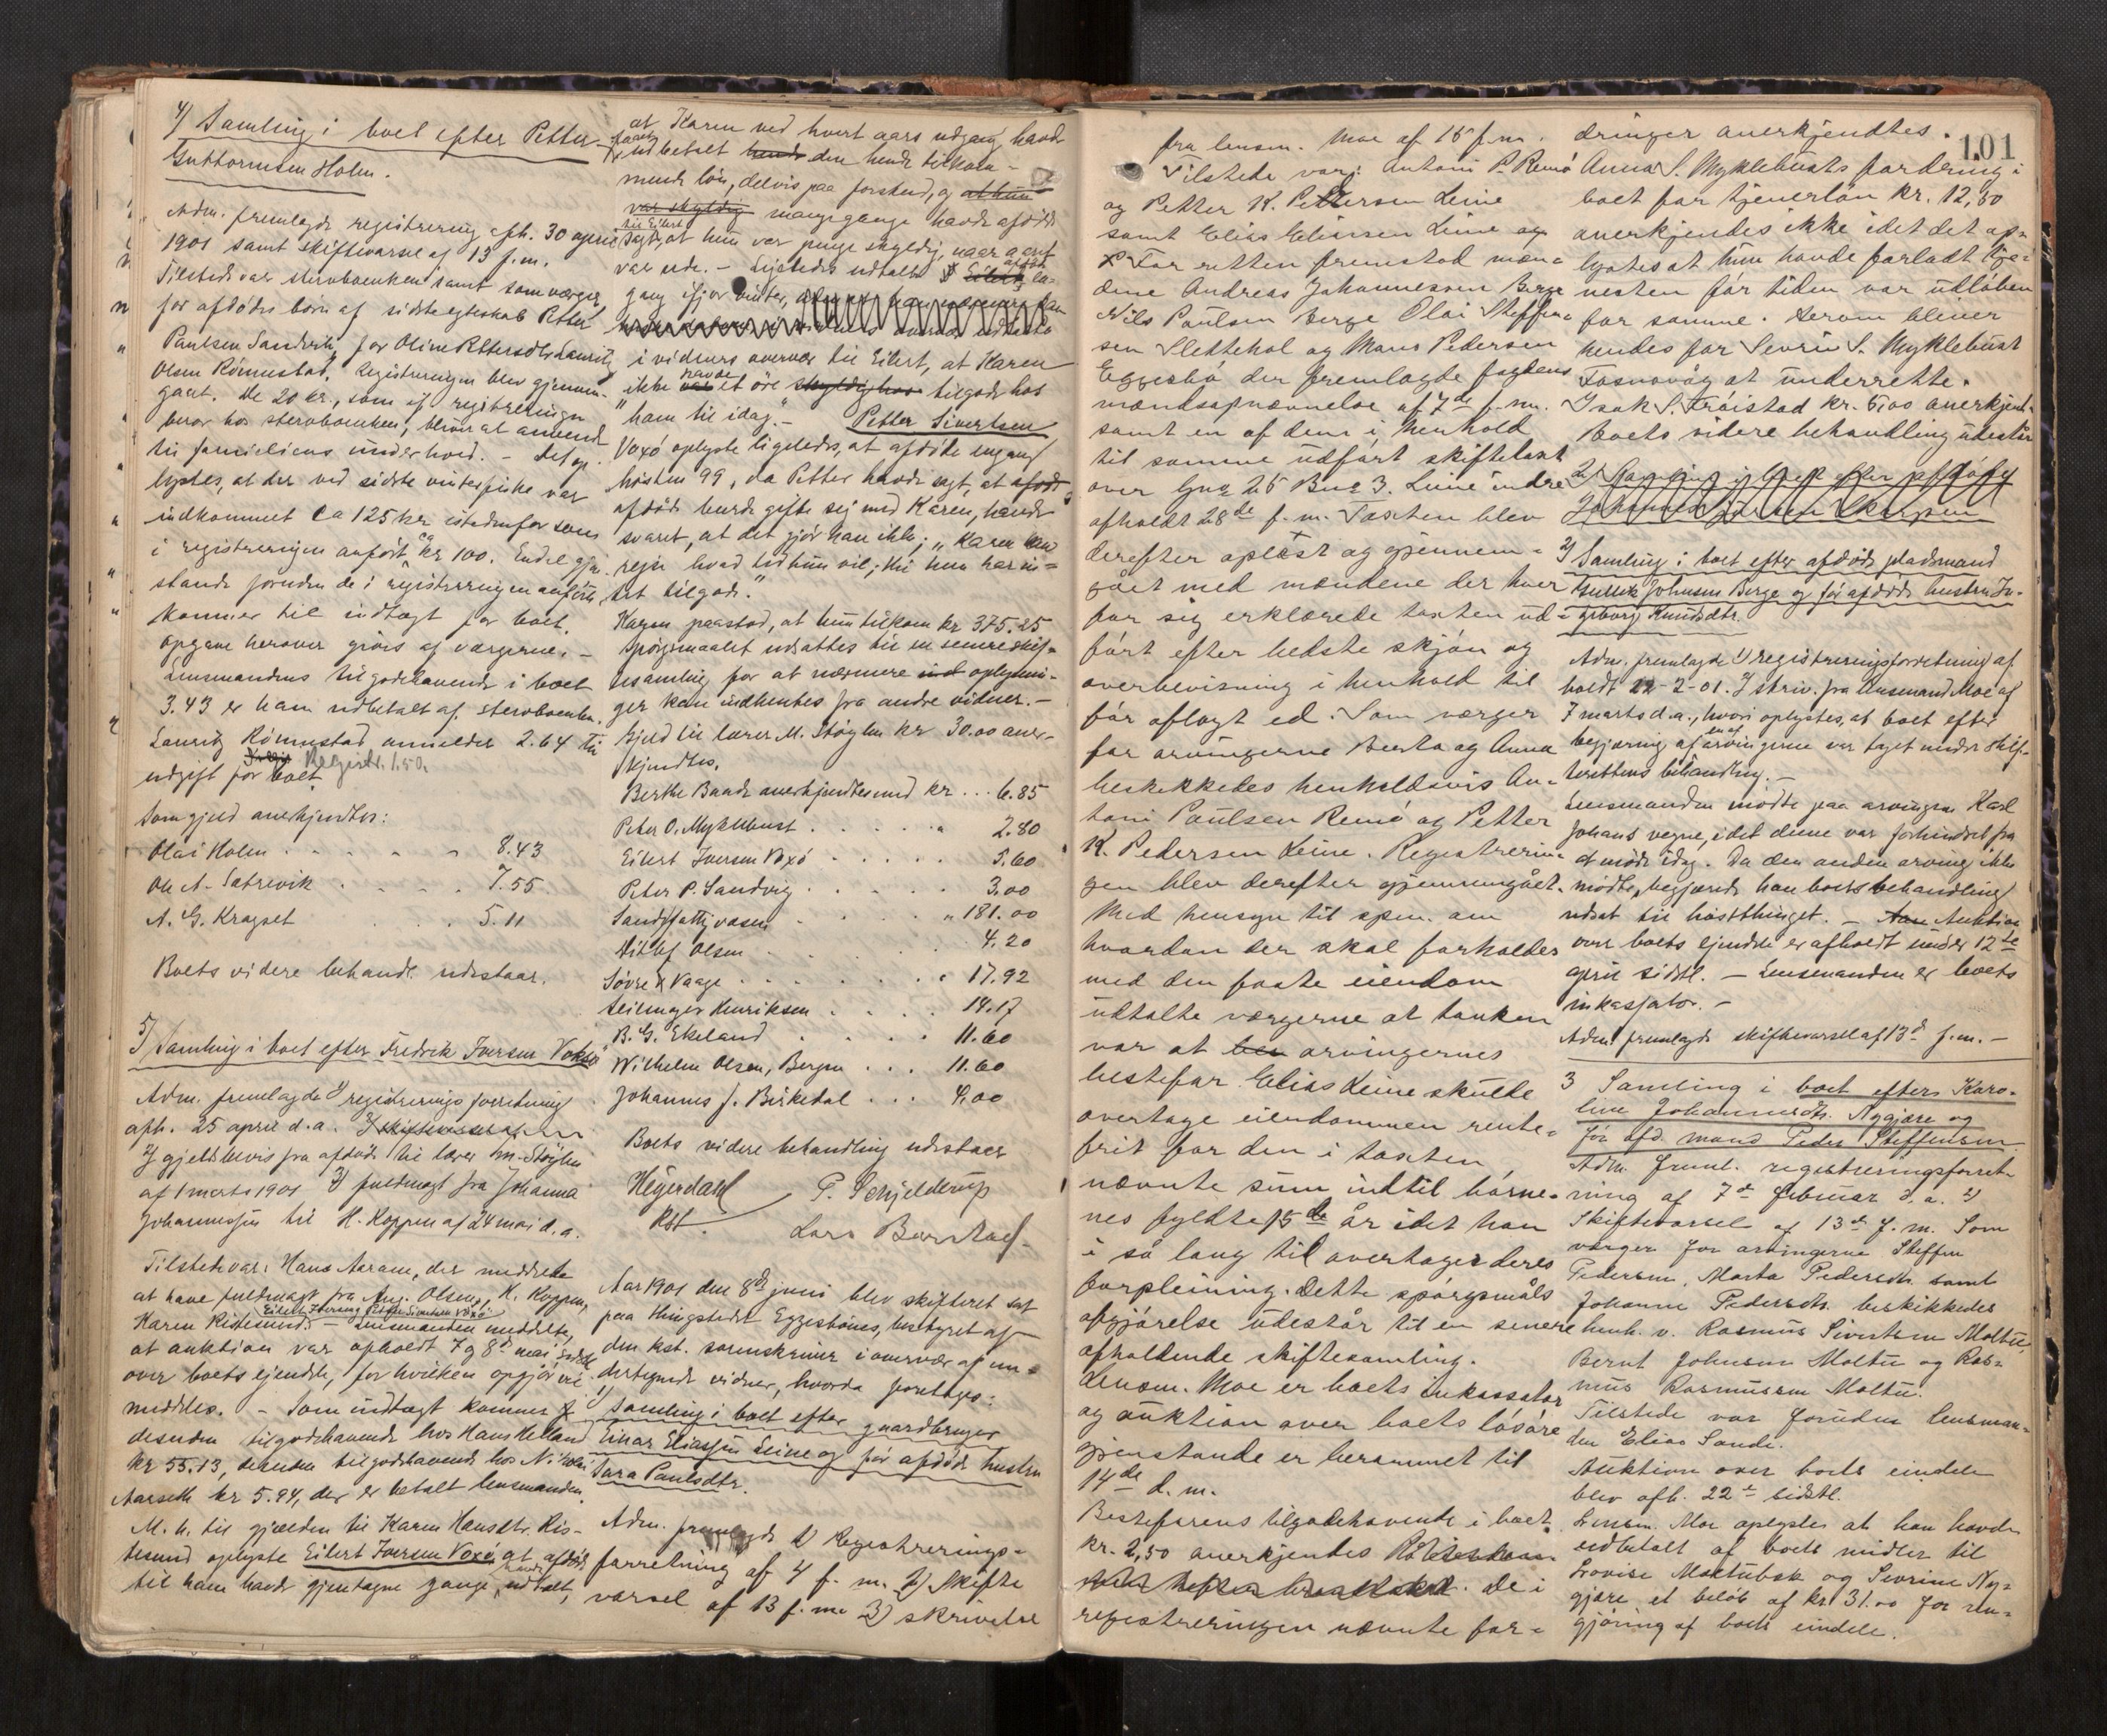 4) Samling i boet efter Petter
Guttormsen Holm.
Adm. fremlagde registrering afh. 30 april
1901 samt skiftevarsel af 13 f.m.
Tilstede var sterboenken samt som værger
for afdødes børn af sidste egteskab Petter
Paulsen Sandvik, for Oline Pettersdtr. Lauritz
Olsen Rönnestad. Registreringen blev gjennem-
gaaet. De 20 kr., som if. registreringen
beror hos sterboenken, bliver at anvende
til familiens underhold. - Det op-
lystes, at der ved sidste vinterfiske var
indkommet ca 125 kr istedenfor som
i registreringen anført ca kr 100. Endel gjen-
stande foruden de i registreringen anførte
kommer til indtægt for boet.
Opgave herover gives af værgerne. -
Lensmandens tilgodehavende i boet
3.43 er ham udbetalt af sterboenken.
Lauritz Rönnestad anmeldte 2.64 til
udgift for boet. Registr. 1.50.
Som gjeld anerkjendtes:
Olai Holm . . . . . 8.43
Ole A. Satrevik . . . . 7.55
A. G. Kragset . . . 5.11
Boets videre behandl. udestaar.
5) Samling i boet efter Fredrik Iversen Voksø
Adm. fremlagde 1) registreringsforretning
afh. 25 april d.a. 2) skiftevarsel af
2) gjeldsbevis fra afdøde til lærer M. Støylen
af 1 marts 1901 3) fuldmagt fra Johanna
Johannessen til H. Koppen af 24 mai d.a.
Tilstede var: Hans Aarane, der meddelte
at have fuldmagt fra Aug. Olsen, K. Koppen,
Eilert Iversen, Petter Sivertsen Voxö
Karen Ristesund. - Lensmanden meddelte,
at auktion var afholdt 7 og 8de mai sidstl.
over boets eiendele, for hvilken opgjør vil
meddeles. - Som indtægt kommer
desuden tilgodehavende hos Hans Helland
kr 55.13, desuden tilgodehavende hos Nikolai
Aarseth kr 5.94, der er betalt lensmanden.
M. h. til gjælden til Karen Hansdtr. Ris-
tesund oplyste Eilert Iversen Voxö, at afdøde
til ham havde gjentagne gange udtalt,
at Karen ved hvert aars udgang havde
faaet udbetalt hende den hende tilkom-
mende løn, delvis paa forskud, og at hun
var skyldig mangegange havde afdøde
til Eilert sagt, at hun var penge skyldig, naar aaret
var ude. - Ligeledes udtalte Eilert afdøde en-
gang ifjor vinter,
i vidners overvær til Eilert, at Karen
ikke var havde et øre skyldig hos tilgode hos
"ham til idag". - Petter Sivertsen
Voxö oplyste ligeledes, at afdøde engang
høsten 99, da Petter havde sagt, at afdøde
afdøde burde gifte sig med Karen, havde
svaret, at det gjør han ikke; "Karen kan
reise hvad tid hun vil; thi hun har in-
tet tilgode."
Karen paastod, at hun tilkom kr 375.25
Spørgsmaalet udsattes til en senere skif-
tesamling for at nærmere ind oplysnin-
ger kan indhentes fra andre vidner. -
Gjeld til lærer M. Støylen kr 30.00 aner-
kjendtes.
Berthe Bande anerkjendtes med kr . . . 6.85
Peter O. Myklebust . . . . . " 2.80
Eilert Iversen Voxö . . . . . 5.60
Peter P. Sandvig . . . . . 3.00
Sandsfattigvæsen . . . " 181.00
Nils Olsen . . . . . 4.20
Sövre Vaage . . . . . . " 17.92
Seilmager Henriksen . . . . 14.17
B. G. Ekeland . . . . . 11.60
Wilhelm Olsen, Bergen . . . 11.60
Johannes J. Birkedal . . . 4.00
Boets videre behandling udestaar
Heyerdahl P. Schjelderup
kst. Lars Barstad.
Aar 1901 den 8de juni blev skifteret sat
paa thingstedet Eggesbönes, bestyret af
den kst. sorenskriver i overvær af un-
dertegnede vidner, hvorda foretoges:
1) Samling i boet efter gaardbruger
Einar Eliassen Leine og før afdøde hustru
Sara Paulsdtr.
Adm. fremlagde 1) Registrerings-
forretning af 4 f. m. 2) Skifte
varsel af 13 f. m. 3) skrivelse
101
fra lensm. Moe af 15 f.m.
Tilstede var: Antoni P. Remö
og Petter K. Pettersen Leine
samt Elias Eliassen Leine og
For retten fremstod mæn-
dene Andreas Johannessen Berge
Nils Paulsen Berge Olai Steffen-
sen Slettehol og Mons Pedersen
Eggesbö der fremlagde fogdens
mandsopnævnelse af 7de f.m.
samt en af dem i henhold
til samme udfört skiftetaxt
over Gno 25 Bno 3. Leine indre
afholdt 28de f.m. Taxten blev
derefter oplæst og gjennem-
gået med mændene der hver
for sig erklærede taxten ud-
fört efter bedste skjön og
overbevisning i henhold til
för aflagt ed. Som værger
for arvingerne Berta og Anna
beskikkedes henholdsvis An-
toni Paulsen Remö og Petter
K. Pedersen Leine. Registrerin-
gen blev derefter gjennemgået.
Med hensyn til spm. om
hvordan der skal forholdes
med den faste eiendom
udtalte værgerne at tanken
var at ben arvingernes
bestefar Elias Leine skulde
overtage eiendommen rente-
frit for den i taxten
nævnte sum indtil börne-
nes fyldte 15de år idet han
i så lang tid overtager deres
forpleining. Dette spörgsmåls
afgjörelse udestår til en senere
afholdende skiftesamling.
Lensm. Moe er boets inkassator
og auktion over boets lösöre
gjenstande er berammet til
14de d.m.
Bestefarens tilgodehavende i boet
kr. 2,50 anerkjendes De i
registreringen nævnte for-
dringer anerkjendtes.
Anna S. Myklebusts fordring i
boet for tjenerlön kr. 12,50
anerkjendes ikke idet det op-
lystes at hun havde forladt tje-
nesten för tiden var udlöben
for samme. Herom bliver
hendes far Sevrin S. Myklebust
Fosnavåg at underrette.
Isak S. Fröistad kr. 5,00 anerkjent.
Boets videre behandling udestår
2) Samling i boet efter afdöde
Johannes
2) Samling i boet efter afdøde pladsmand
Gullik Johnsen Berge og før afdøde hustru In-
geborg Knudsdtr.
Adm. fremlagde 1) registreringsforretning af-
holdt 22-2-01. 2) skriv. fra lensmand Moe af
7 marts d.a., hvori oplystes, at boet efter
begjæring af en af arvingerne var taget under skif-
terettens behandling. -
Lensmanden mødte paa arvingen Karl
Johans vegne, idet denne var forhindret fra
at møde idag. Da den anden arving ikke
mødte, begjærede han boets behandling
udsat til høstthinget. - Auktion
over boets eiendele er afholdt under 12te
april sidstl. - Lensmanden er boets
inkassator. -
Adm. fremlagde skiftevarsel af 13d f.m. -
3 Samling i boet efter Karo-
line Johannesdtr. Nygjære og
før afd. mand Peder Steffensen
Adm. freml. registreringsforret-
ning af 7de februar d.a. 2)
Skiftevarsel af 13de f.m. Som
værger for arvingerne Steffen
Pedersen, Marta Pedersdtr. samt
Johanne Pedersdtr. beskikkedes
henh. v. Rasmus Sivertsen Moltu,
Bernt Johnsen Moltu og Ras-
mus Rasmussen Moltu.
Tilstede var foruden lensman-
den Elias Sande.
Auktion over boets eiendele
blev afh. 22de sidstl.
Lensm. Moe oplyste at han havde
udbetalt af boets midler til
Lovise Moltubak og Sevrine Ny-
gjære et beløb af kr. 31.00 for ren-
gjøring af boets eiendele.